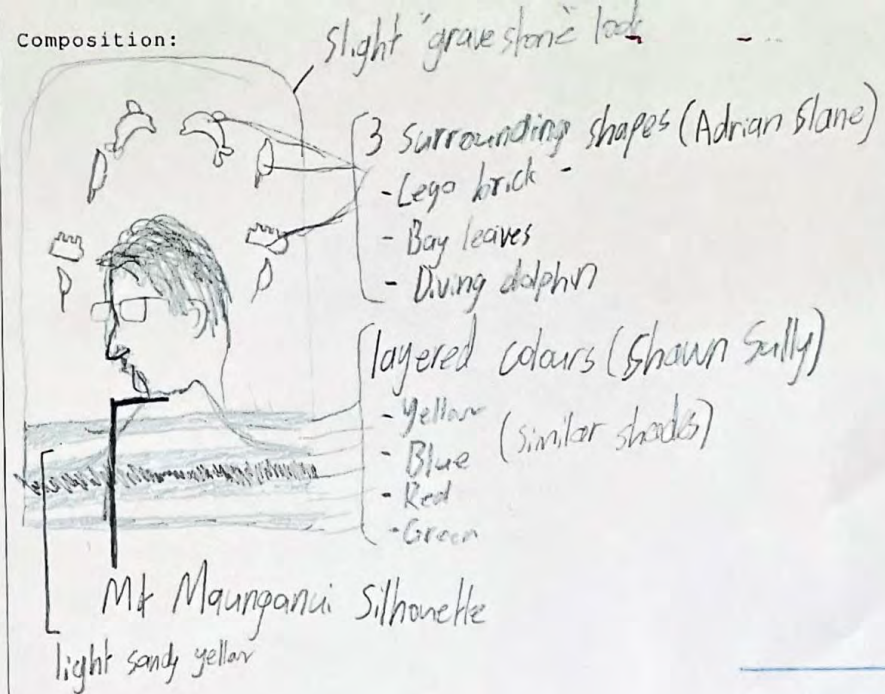 Composition:
Slight "gravestone" look
3 surrounding shapes (Adrian Slane)
- Lego brick -
- Bay leaves
- Diving dolphin
layered colours (Shawn Sully)
- Yellow
(similar shades)
- Blue
- Red
- Green
Mt Maunganui Silhouette
light sandy yellow